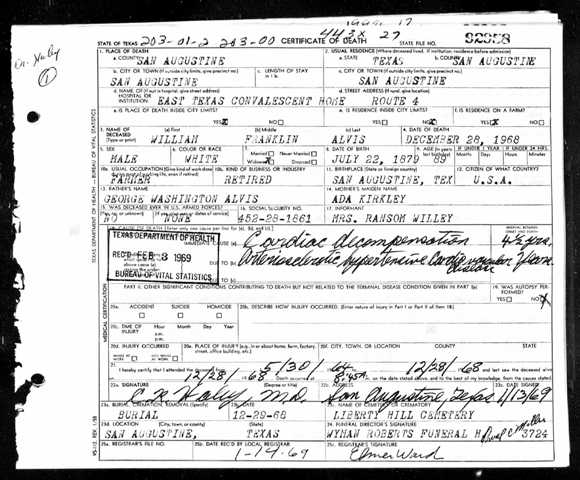 STATE OF TEXAS 203-01-2 203-00 CERTIFICATE OF DEATH 443X 27 STATE FILE 92958
Dr. Haley
1
1. PLACE OF DEATH 2. USUAL RESIDENCE
a. COUNTY SAN AUGUSTINE a. STATE TEXAS b. COUNTY SAN AUGUSTINE
b. CITY OR TOWN (If outside city limits, give precinct no.) c. LENGTH OF STAY c. CITY OR TOWN (If outside city limits, give precinct no.)
SAN AUGUSTINE SAN AUGUSTINE
d. NAME OF HOSPITAL OR INSTITUTION EAST TEXAS CONVALESCENT HOME d. STREET ADDRESS (If rural, give location) ROUTE 4
e. IS PLACE OF DEATH INSIDE CITY LIMITS? YES X NO e. IS RESIDENCE INSIDE CITY LIMITS? YES NO X f. IS RESIDENCE ON A FARM? YES NO
3. NAME OF DECEASED (Type or print) (a) First (b) Middle (c) Last 4. DATE OF DEATH
WILLIAM FRANKLIN ALVIS DECEMBER 28, 1968
5. SEX 6. COLOR OR RACE 7. Married Never Married Widowed X Divorced 8. DATE OF BIRTH 9. AGE IF UNDER 1 YEAR IF UNDER 24 HRS.
MALE WHITE JULY 22, 1879 89 Months Days Hours Minutes
10a. USUAL OCCUPATION 10b. KIND OF BUSINESS OR INDUSTRY 11. BIRTHPLACE (State or foreign country) 12. CITIZEN OF WHAT COUNTRY?
FARMER RETIRED SAN AUGUSTINE, TEX U.S.A.
13. FATHER'S NAME 14. MOTHER'S MAIDEN NAME
GEORGE WASHINGTON ALVIS ADA KIRKLEY
15. WAS DECEASED EVER IN U.S. ARMED FORCES? 16. SOCIAL SECURITY NO. 17. INFORMANT
NO NONE 452-28-1661 MRS. RANSOM WILLEY
Cardiac decompensation 4½ yrs.
TEXAS DEPARTMENT OF HEALTH
REC'D FEB 3 1969
BUREAU OF VITAL STATISTICS
Arteriosclerotic hypertensive Cardiovascular disease Years
PART II. OTHER SIGNIFICANT CONDITIONS CONTRIBUTING TO DEATH BUT NOT RELATED TO THE TERMINAL DISEASE CONDITION GIVEN IN PART I 19. WAS AUTOPSY PERFORMED? YES NO X
20a. ACCIDENT SUICIDE HOMICIDE 20b. DESCRIBE HOW INJURY OCCURRED.
20c. TIME OF INJURY Hour Month Day Year a.m. p.m.
20d. INJURY OCCURRED 20e. PLACE OF INJURY 20f. CITY, TOWN, OR LOCATION COUNTY STATE
21. I hereby certify that I attended the deceased 5/30/64 12/28/68
12/28/68 8:45A
22a. SIGNATURE C R Haley M.D. 22b. ADDRESS San Augustine, Texas 22c. DATE SIGNED 1/13/69
23a. BURIAL, CREMATION, REMOVAL 23b. DATE 23c. NAME OF CEMETERY OR CREMATORY
BURIAL 12-29-68 LIBERTY HILL CEMETERY
23d. LOCATION (City, town, or county) (State) 24. FUNERAL DIRECTOR'S SIGNATURE
SAN AUGUSTINE, TEXAS WYMAN ROBERTS FUNERAL H 3724
25a. REGISTRAR'S FILE NO. 25b. DATE REC'D BY LOCAL REGISTRAR 25c. REGISTRAR'S SIGNATURE
1-14-69 Elmer Ward
TEXAS DEPARTMENT OF HEALTH — BUREAU OF VITAL STATISTICS
MEDICAL CERTIFICATION